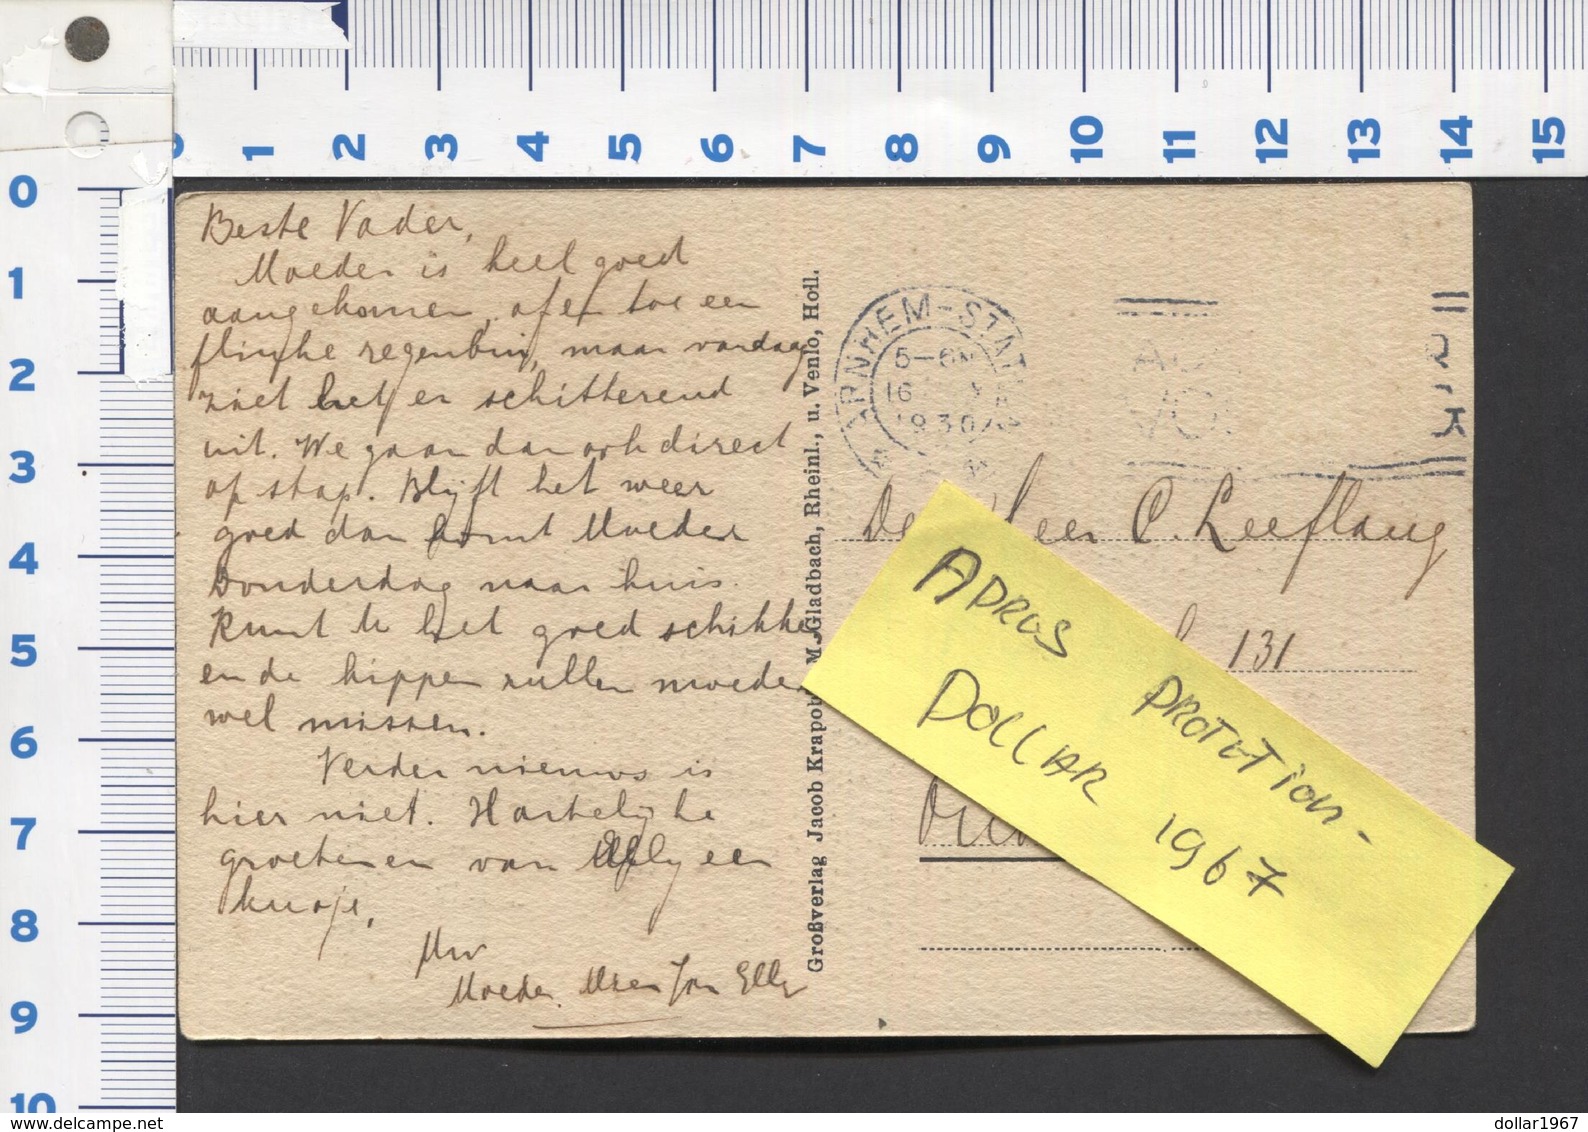 0 1 2 3 4 5 6 7 8 9 10 11 12 13 14 15
0
1
2
3
4
5
6
7
8
9
10
Beste Vader,
Moeder is heel goed
aangekomen, af en toe een
flinke regenbui, maar vandaag
ziet het er schitterend
uit. We gaan dan ook direct
op stap. Blijft het weer
goed dan komt Moeder
Donderdag naar huis.
Kunt U het goed schikken
en de kippen zullen moeder
wel missen.
Verder nieuws is
hier niet. Hartelijke
groeten en van Elly een
kusje,
Uw
Moeder. Jan Elly
Großverlag Jacob Krapohl, M.Gladbach, Rheinl., u. Venlo, Holl.
ARNHEM-STAT
5-6N
16
1930
De Heer C. Leeflang
131
ADRES PROTETION-
DOLLAR 1967
www.delcampe.net
dollar1967